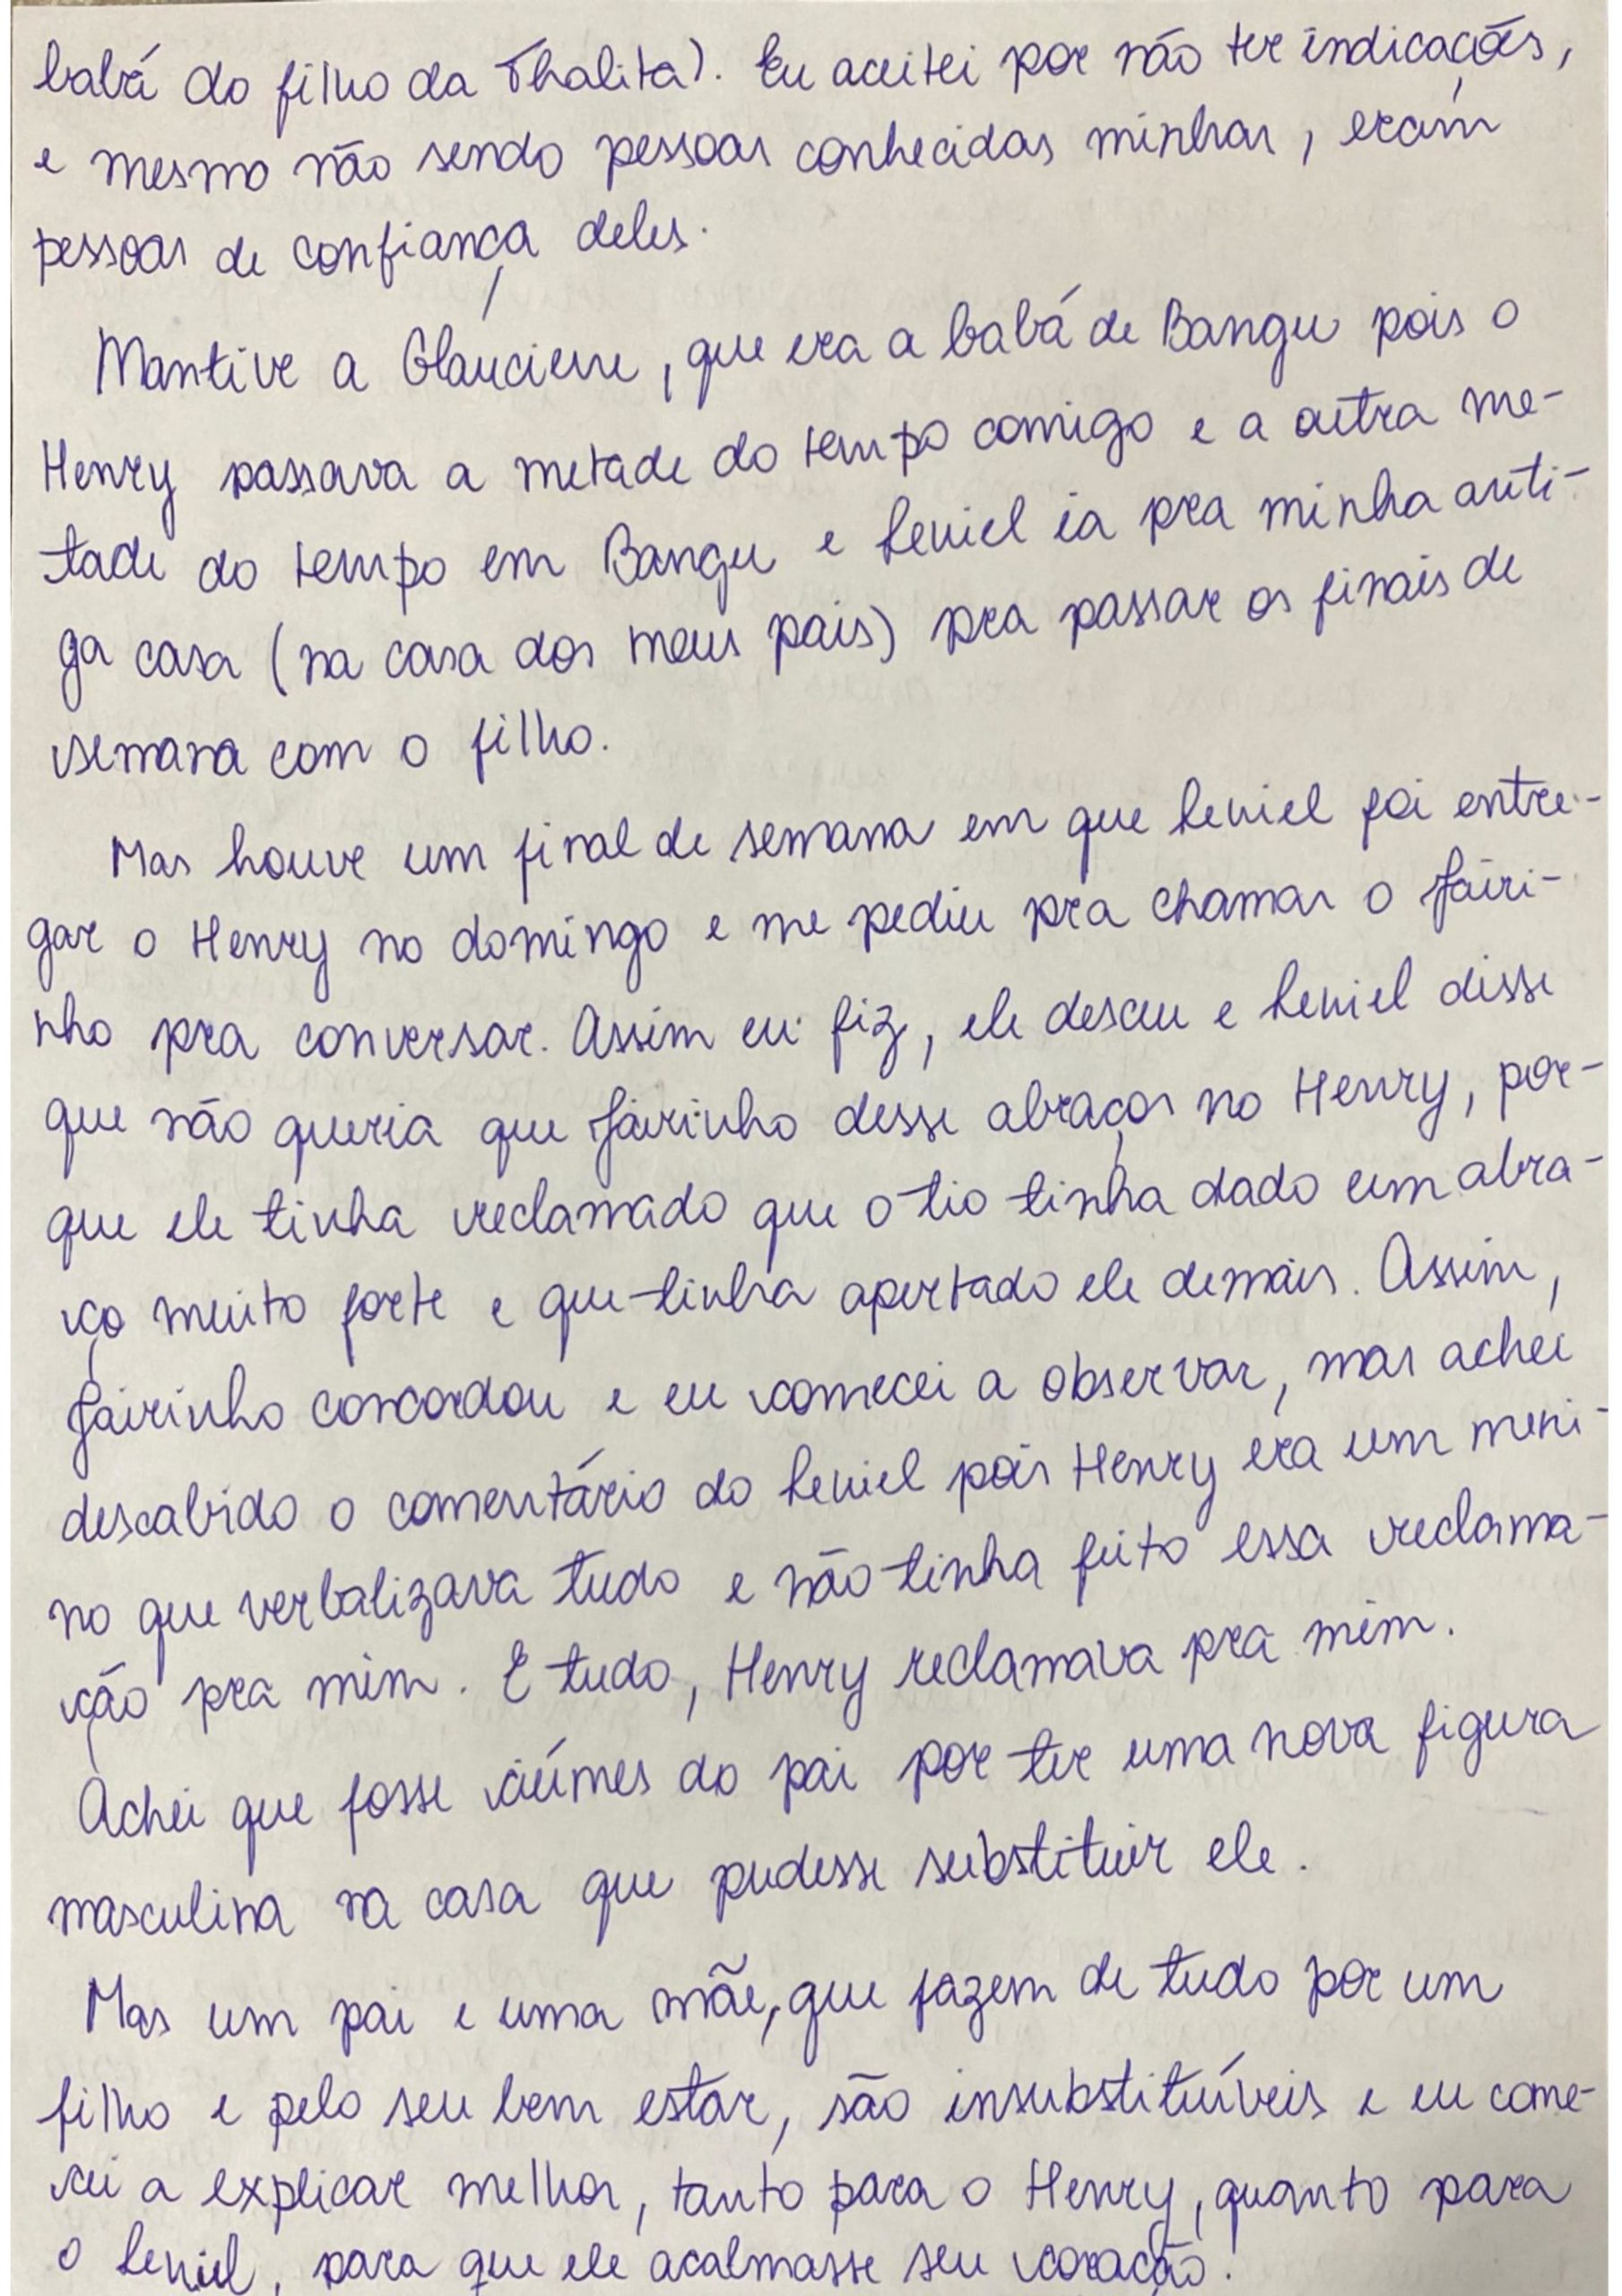 babá do filho da Thalita). Eu aceitei por não ter indicações,
e mesmo não sendo pessoas conhecidas minhas, eram
pessoas de confiança deles.
Mantive a Glauciene, que era a babá de Bangu pois o
Henry passava a metade do tempo comigo e a outra me-
tade do tempo em Bangu e Leniel ia pra minha anti-
ga casa (na casa dos meus pais) pra passar os finais de
semana com o filho.
Mas houve um final de semana em que Leniel foi entre-
gar o Henry no domingo e me pediu pra chamar o Jairi-
nho pra conversar. Assim eu fiz, ele desceu e Leniel disse
que não queria que Jairinho desse abraços no Henry, por-
que ele tinha reclamado que o tio tinha dado um abra-
ço muito forte e que tinha apertado ele demais. Assim,
Jairinho concordou e eu comecei a observar, mas achei
descabido o comentário do Leniel pois Henry era um meni-
no que verbalizava tudo e não tinha feito essa reclama-
ção pra mim. E tudo, Henry reclamava pra mim.
Achei que fosse ciúmes do pai por ter uma nova figura
masculina na casa que pudesse substituir ele.
Mas um pai e uma mãe, que fazem de tudo por um
filho e pelo seu bem estar, são insubstituíveis e eu come-
cei a explicar melhor, tanto para o Henry, quanto para
o Leniel, para que ele acalmasse seu coração.